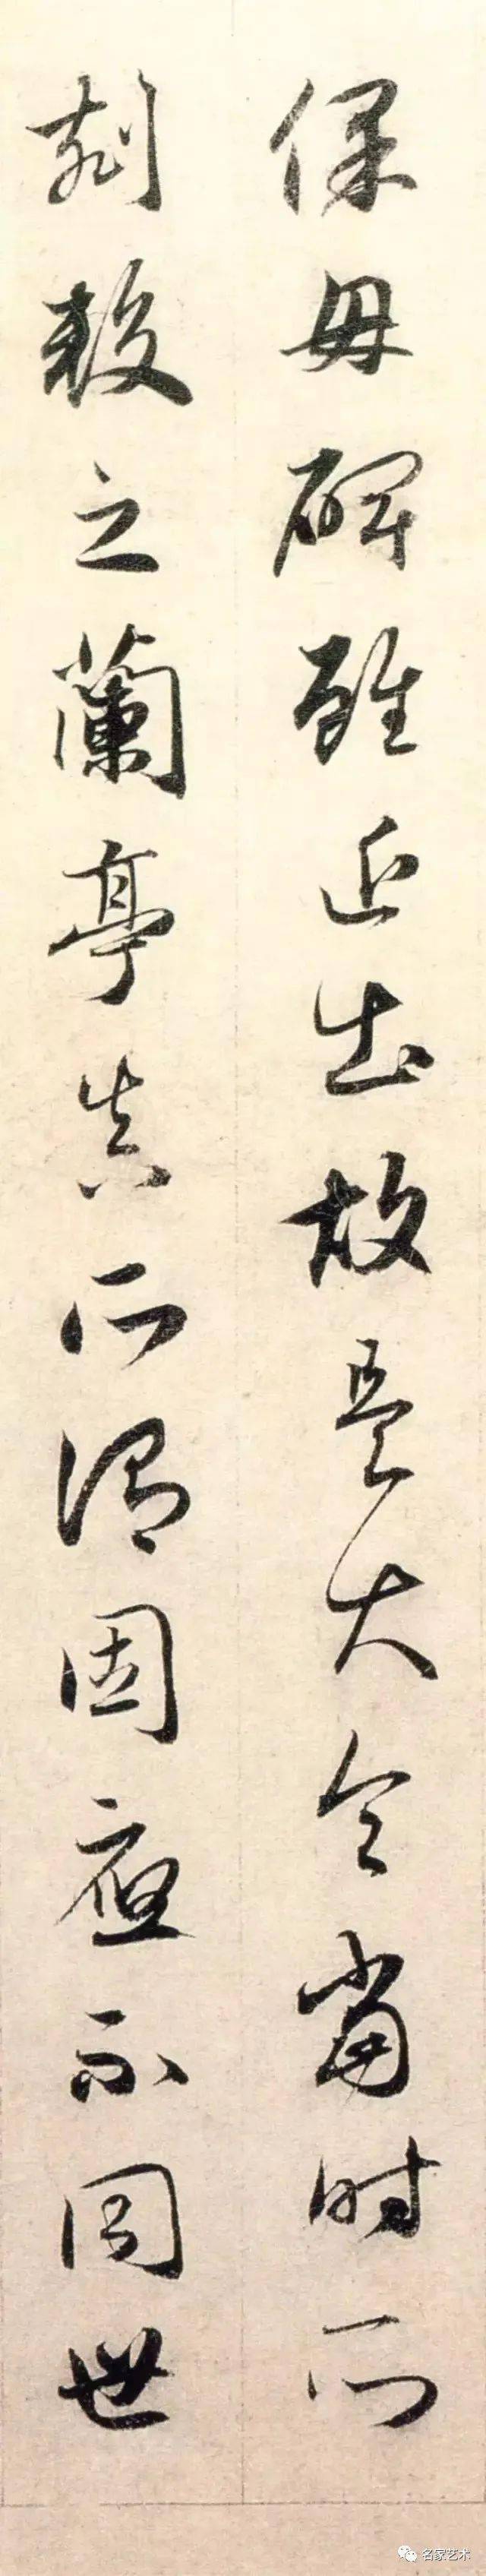 保母碑雖近出故是大令當時所
刻較之蘭亭真所謂固應不同世
名家艺术